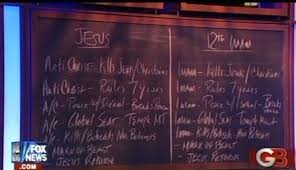 JESUS
Anti Christ - Kills Jews/Christians
Anti Christ - Rules 7 years
A/C - Peace w/ Israel - Breaks Peace
A/C - Global Seat Temple MT
A/C - Kills/Beheads Non Believers
MARK OF BEAST
JESUS RETURNS
12th Imam
Imam - Kills Jews/Christians
Imam - Rules 7 years
Imam - Peace w/ Israel - Breaks
Imam - Global Seat Temple Mount
Imam - Kills/Beheads Non Believers
MARK OF BEAST
JESUS RETURNS
FOX
NEWS
.COM
GB